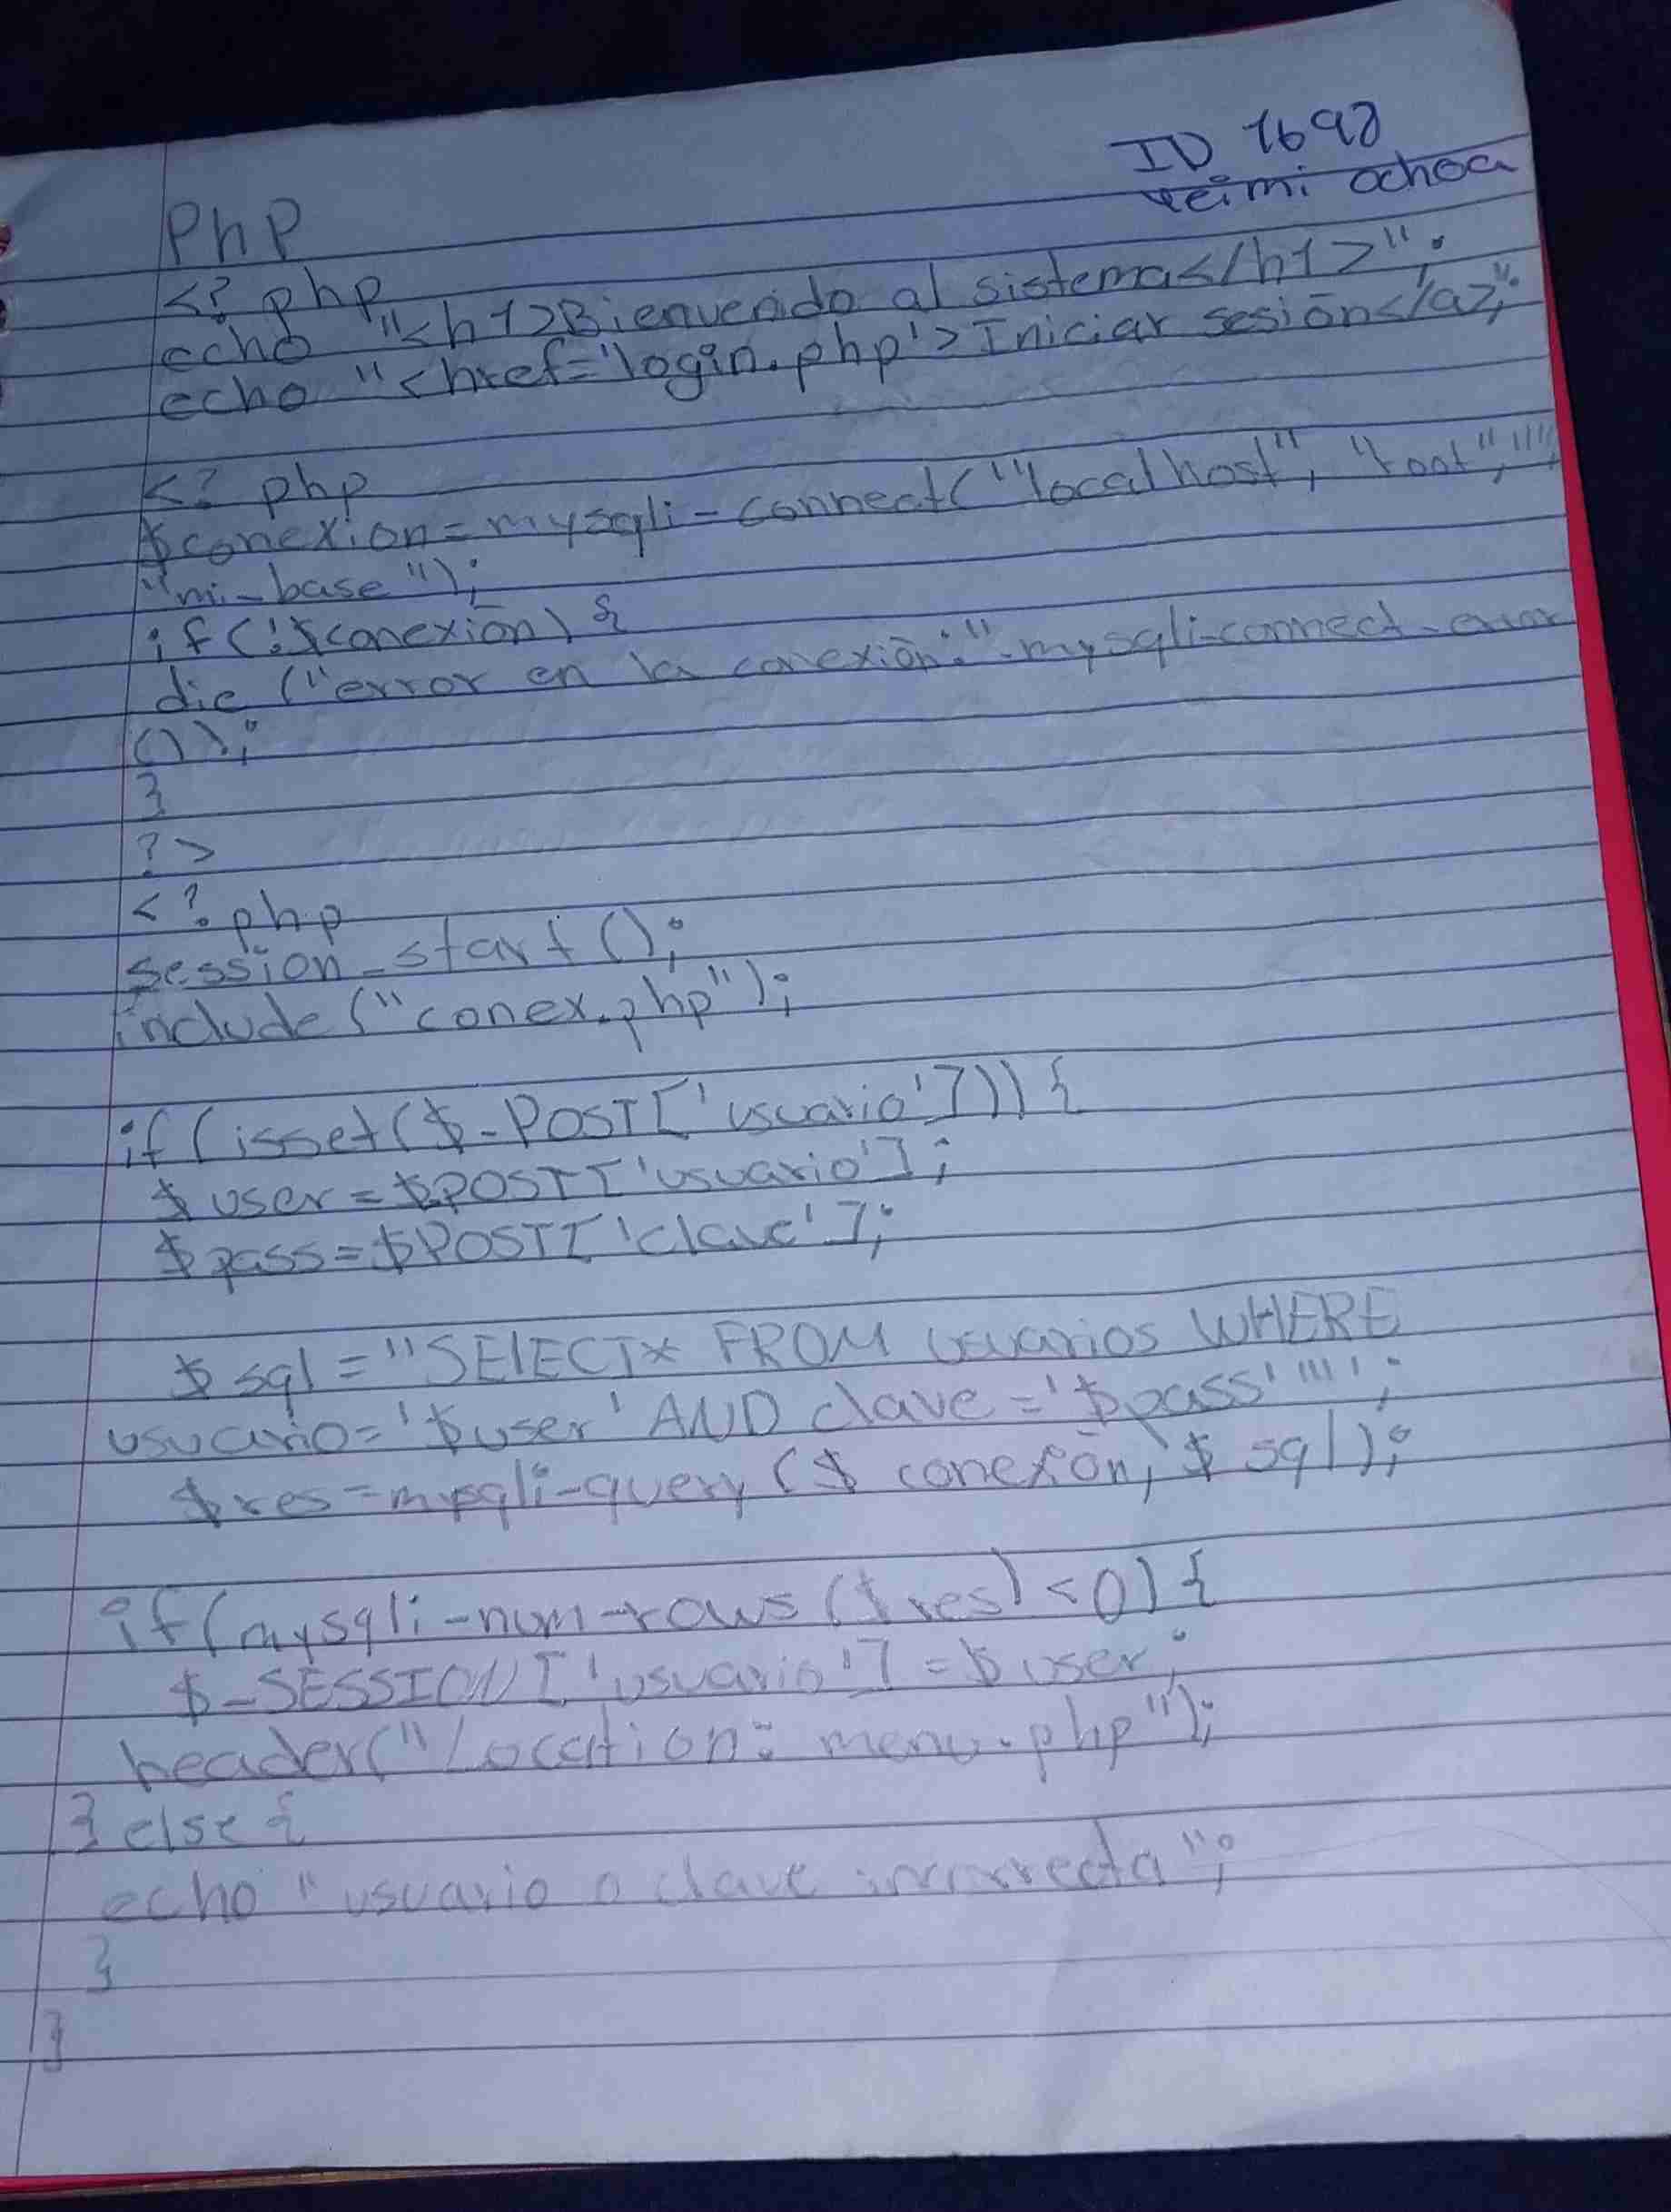 ID 1698
Yeimi ochoa
PhP
<? php
echo "<h1>Bienvenido al sistema</h1>";
echo "<href='login.php'>Iniciar sesión</a>";
<? php
$conexion=mysqli-connect("localhost", "root",""
"mi-base");
if(!$conexión) {
die ("error en la conexión:".mysqli-connect-error
());
}
?>
<?php
session-start();
include("conex.php");
if(isset($-POST['usuario'])) {
$user=$POST['usuario'];
$pass=$POST['clave'];
$sql="SELECT* FROM usuarios WHERE
usuario='$user' AND clave='$pass'"";
$res=mysqli-query($ conexión, $sql);
if(mysqli-num-rows($res)<0) {
$-SESSION['usuario']=$user;
header("Location: menu.php");
} else {
echo "usuario o clave incorrecta";
}
}